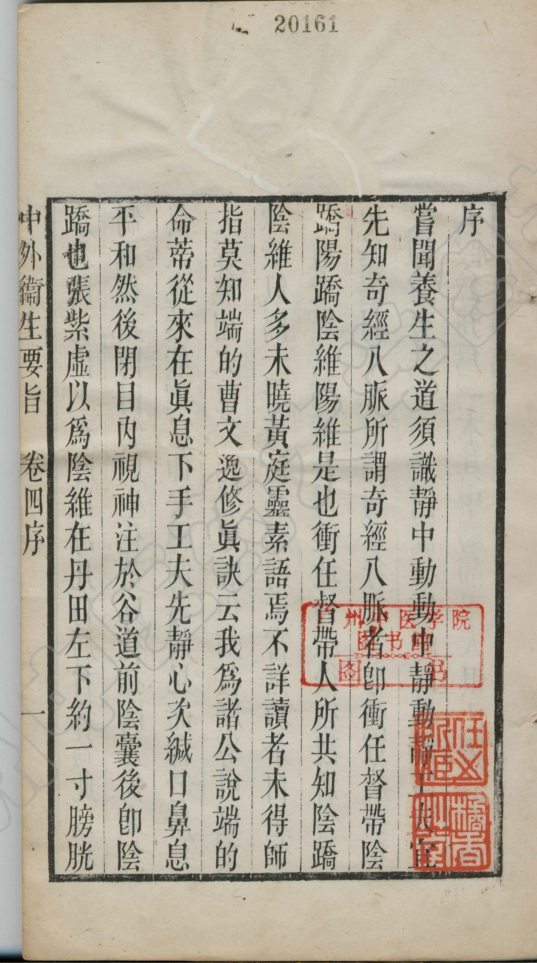 20161
序
嘗聞養生之道須識靜中動動中靜動靜工夫宜
先知奇經八脈所謂奇經八脈者卽衝任督帶陰
蹻陽蹻陰維陽維是也衝任督帶人所共知陰蹻
陰維人多未曉黃庭靈素語焉不詳讀者未得師
指莫知端的曹文逸修眞訣云我爲諸公說端的
命蒂從來在眞息下手工夫先靜心次緘口鼻息
平和然後閉目內視神注於谷道前陰囊後卽陰
蹻也張紫虛以爲陰維在丹田左下約一寸膀胱
中外衞生要旨 卷四序 一
州 医学院
图书